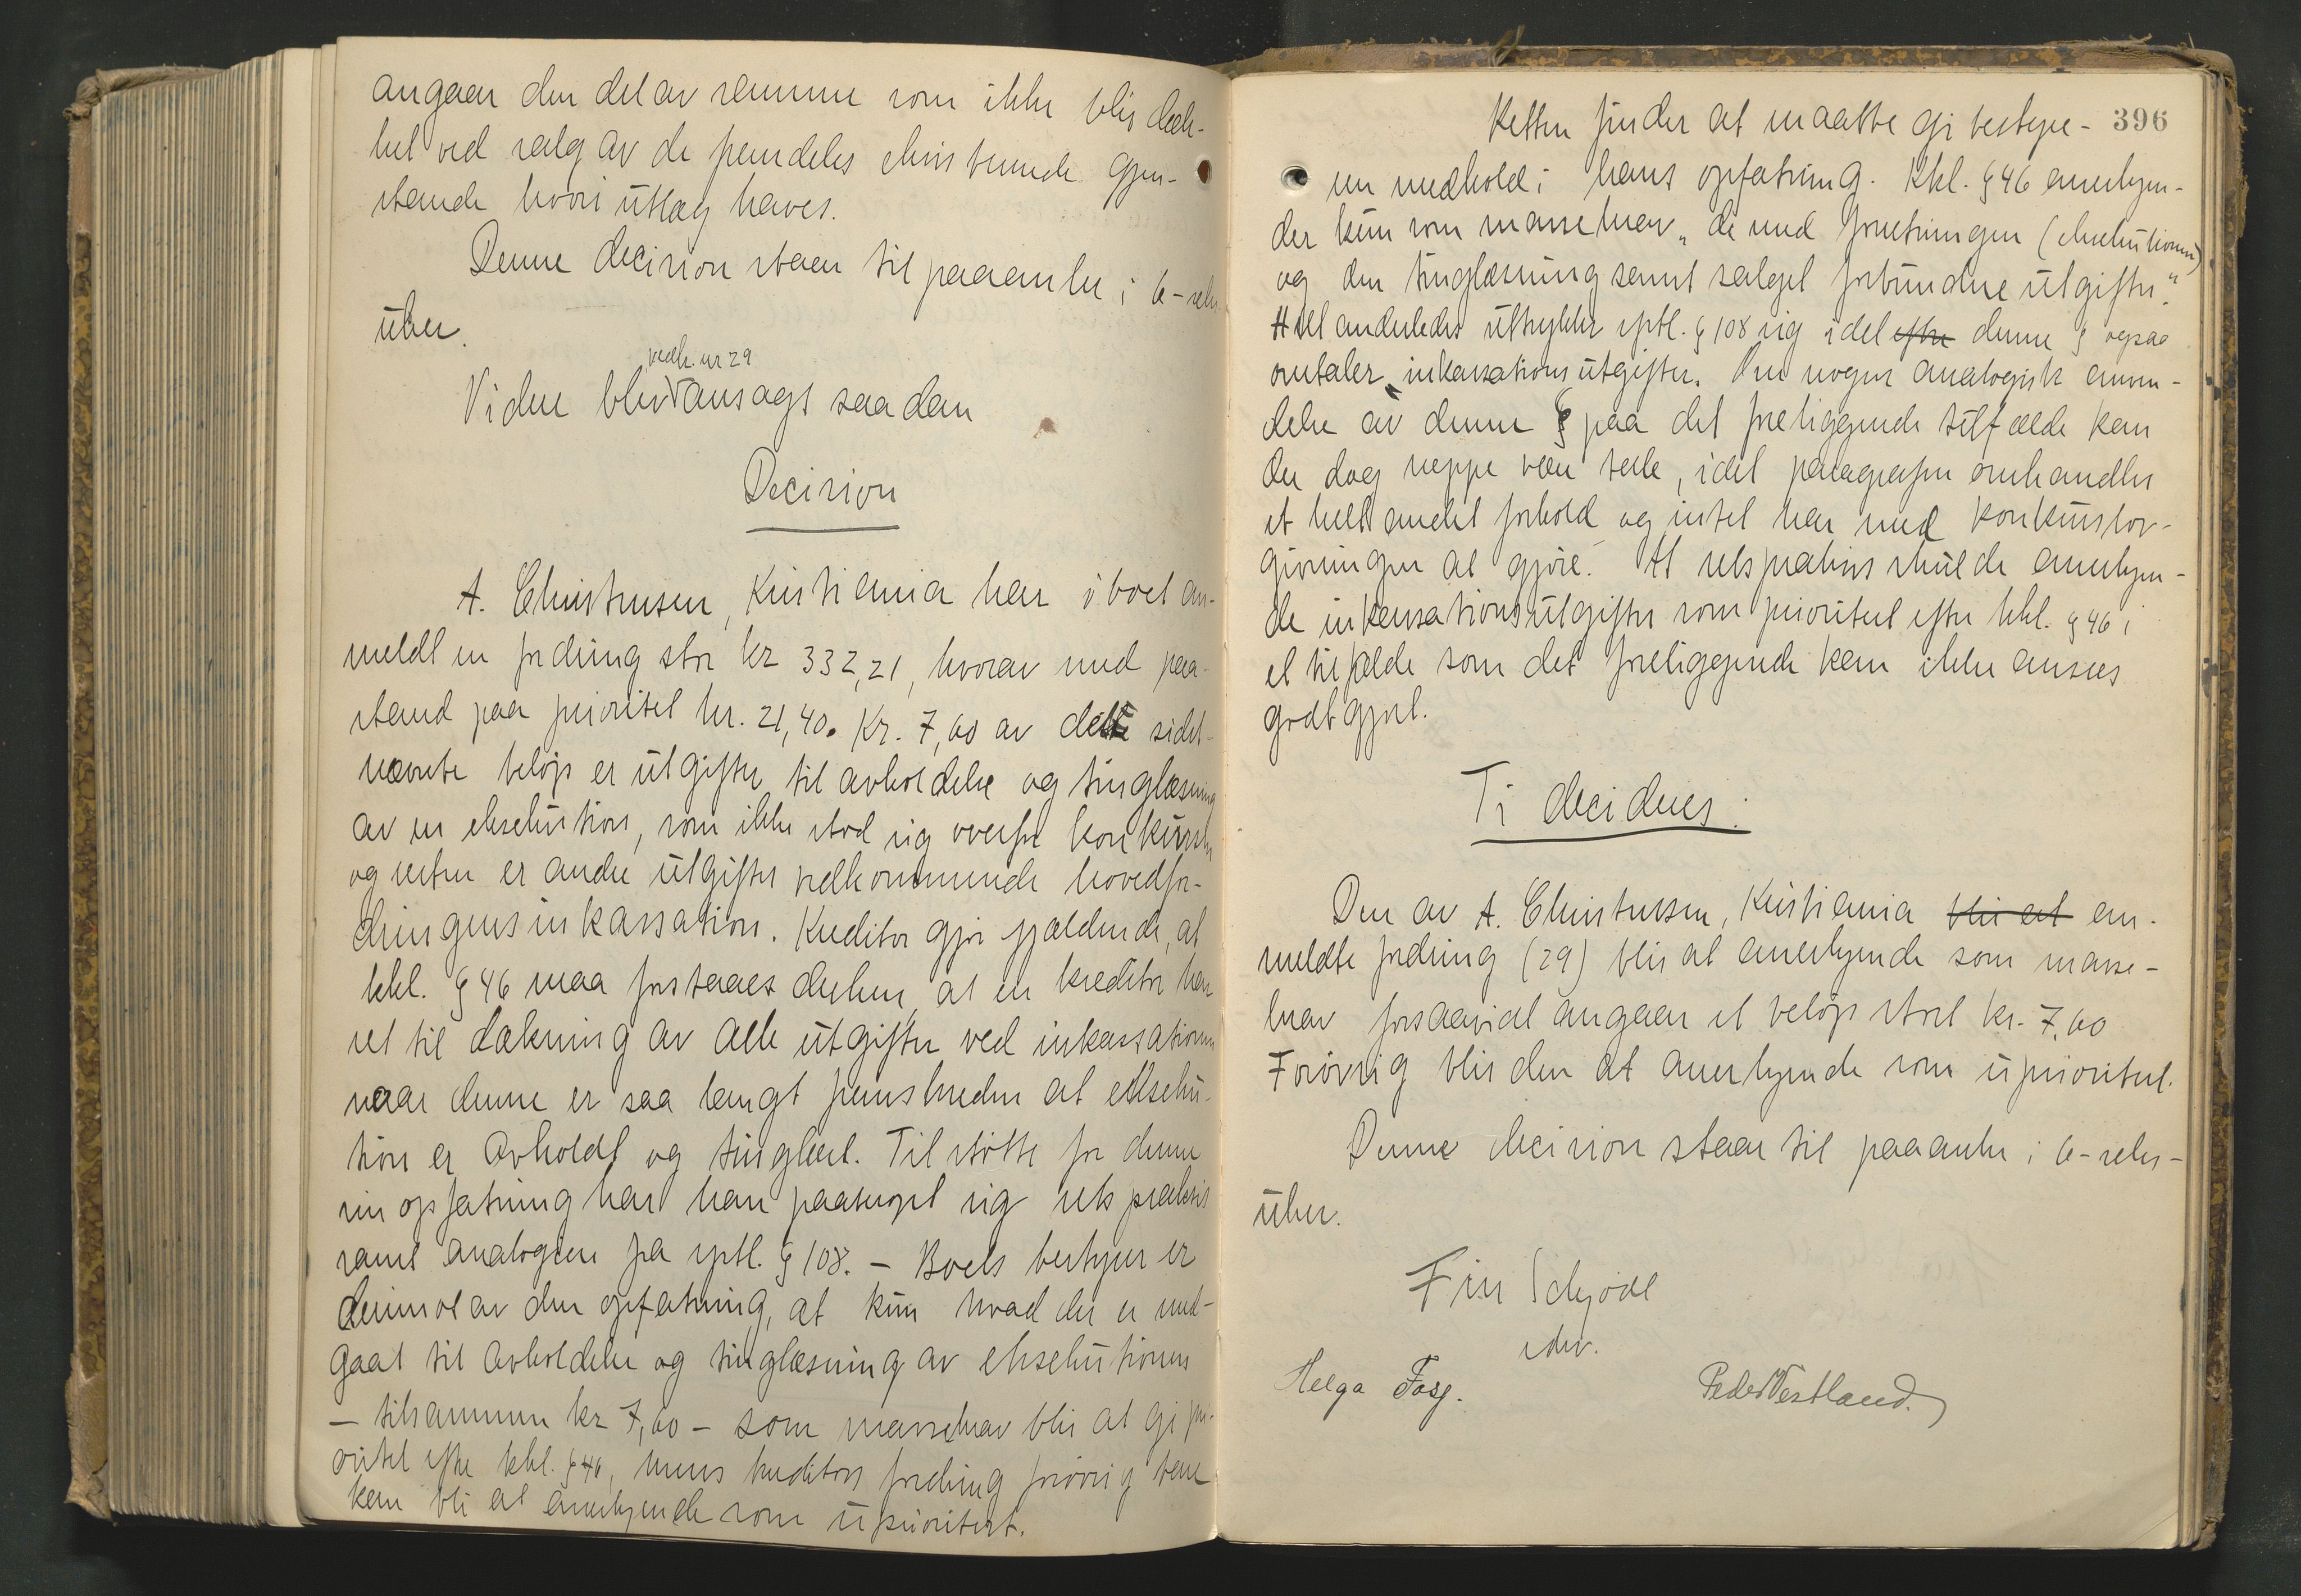 angaar den del av samme som ikke blir dæk-
ket ved salg av de fremdeles eksisterende gjen-
stande hvori utlæg haves.
Denne decision staar til paaanke i 6-seks-
uker.
vedk. nr 29
Videre blev avsagt saadan
Decision
A. Christensen, Kristiania har i boet an-
meldt en fordring stor kr 332,21, hvorav med paa-
stand paa prioritet kr. 21,40. Kr. 7,60 av dette sidst-
nævnte beløp er utgifter til avholdelse og tinglæsning
av en eksekution, som ikke stod sig overfor konkursen
og resten er andre utgifter vedkommende hovedfor-
dringens inkassation. Kreditor gjør gjældende, at
kkl. § 46 maa forstaaes derhen, at en kreditor har
ret til dækning av alle utgifter ved inkassationen
naar denne er saa langt fremskreden at exseku-
tion er avholdt og tinglæst. Til støtte for denne
sin opfatning har han paaberopt sig retspraksis
samt analogien fra sptl. § 108. - Boets bestyrer er
derimot av den opfatning, at kun hvad der er med-
gaat til avholdelse og tinglæsning av eksekutionen
- tilsammen kr 7,60 - som massekrav blir at gi pri-
oritet efter kkl. § 46, mens kreditors fordring forøvrig bare
kan bli at anerkjende som uprioritert.
396
Retten finder at maatte gi bestyre-
ren medhold i hans opfatning. Kkl. § 46 anerkjen-
der kun som massekrav "de med forretningen (eksekutionen)
og den tinglæsning samt salget forbundne utgifter".
Helt anderledes uttrykker sptl. § 108 sig idet efter denne § ogsaa
omtaler inkassationsutgifter. Om nogen analogisk anven-
delse av denne § paa det foreliggende tilfælde kan
der dog neppe være tale, idet paragrafen omhandler
et helt andet forhold og intet har med konkurslov-
givningen at gjøre. At retspraksis skulde anerkjen-
de inkassationsutgifter som prioritert efter kkl. § 46 i
et tilfælde som det foreliggende kan ikke ansees
godtgjort.
Ti decideres:
Den av A. Christensen, Kristiania blir at an-
meldte fordring (29) blir at anerkjende som masse-
krav forsaavidt angaar et beløp stort kr. 7,60
Forøvrig blir den at anerkjende som uprioritert.
Denne decision staar til paaanke i 6-seks-
uker.
Finn Schjødt
edsv.
Helga Fosg.
Peder Vestland.